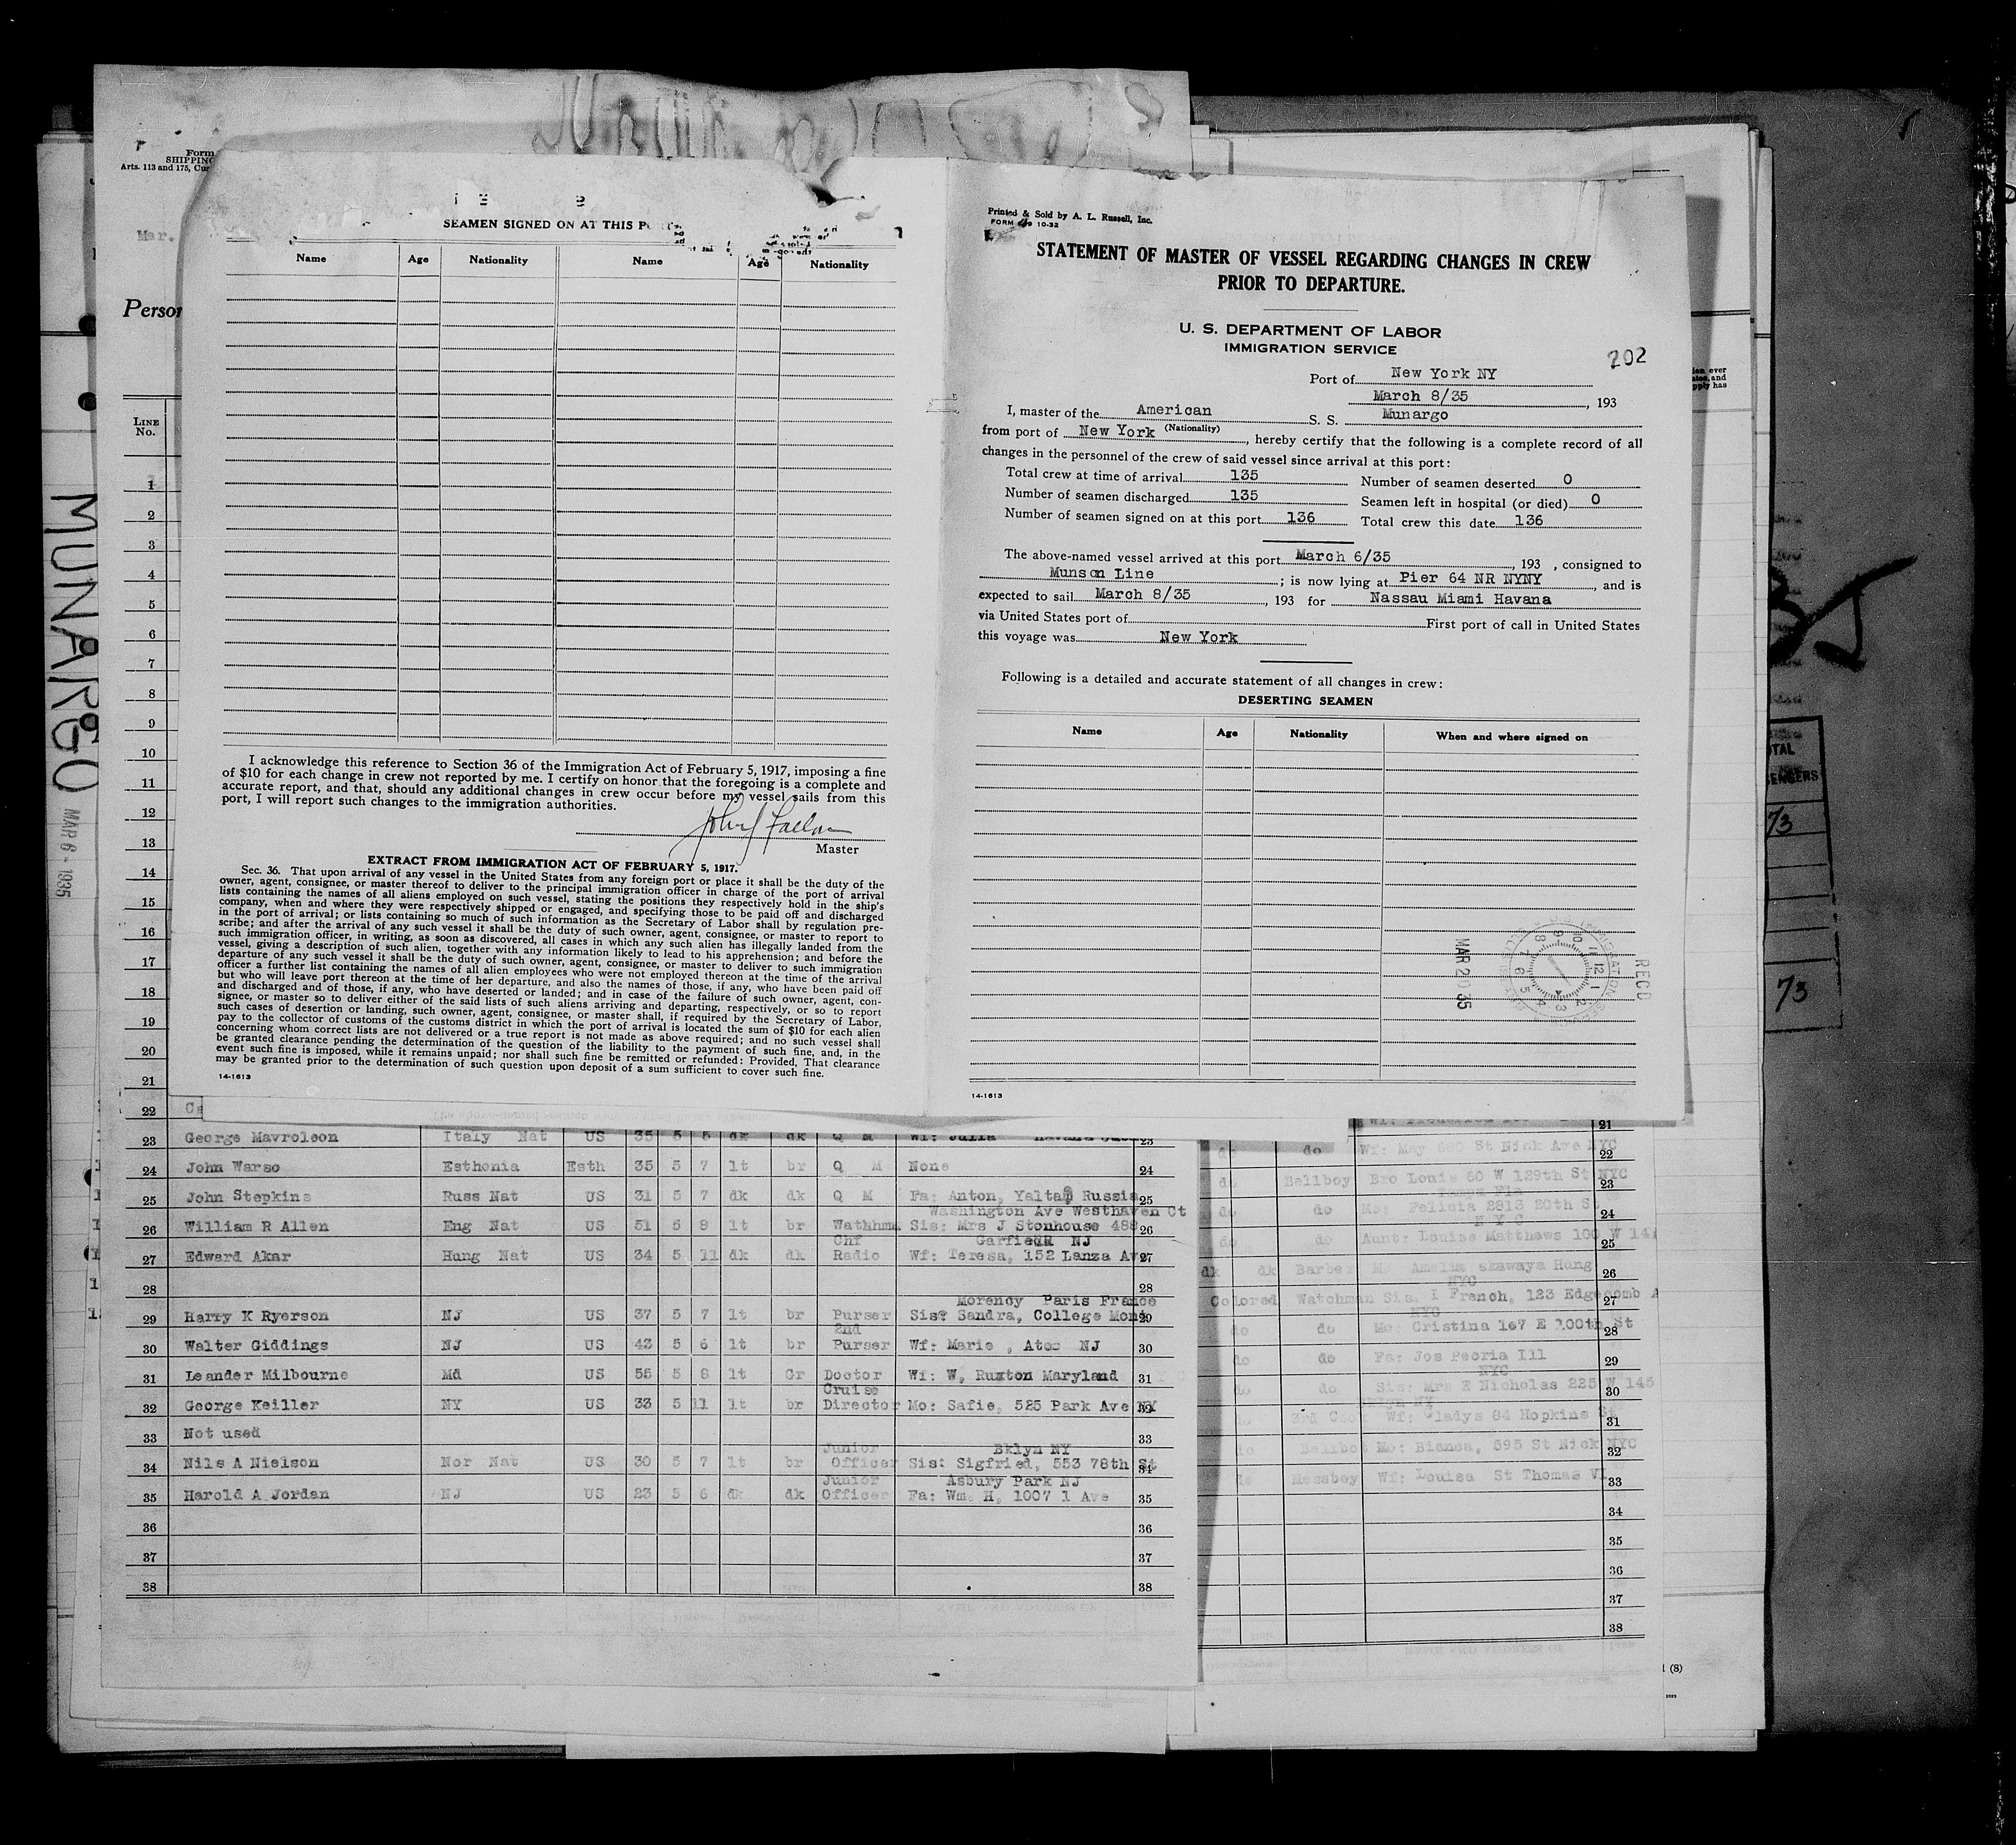 MUNARGO
MAR 6 - 1935
Form
SHIPPING
Arts. 113 and 175, Cus
Mar.
Person
LINE
No.
1
2
3
4
5
6
7
8
9
10
11
12
13
14
15
16
17
18
19
20
21
SEAMEN SIGNED ON AT THIS
Name Age Nationality Name Age Nationality
I acknowledge this reference to Section 36 of the Immigration Act of February 5, 1917, imposing a fine
of $10 for each change in crew not reported by me. I certify on honor that the foregoing is a complete and
accurate report, and that, should any additional changes in crew occur before my vessel sails from this
port, I will report such changes to the immigration authorities.
Master
EXTRACT FROM IMMIGRATION ACT OF FEBRUARY 5, 1917.
Sec. 36. That upon arrival of any vessel in the United States from any foreign port or place it shall be the duty of the
owner, agent, consignee, or master thereof to deliver to the principal immigration officer in charge of the port of arrival
lists containing the names of all aliens employed on such vessel, stating the positions they respectively hold in the ship's
company, when and where they were respectively shipped or engaged, and specifying those to be paid off and discharged
in the port of arrival; or lists containing so much of such information as the Secretary of Labor shall by regulation pre-
scribe; and after the arrival of any such vessel it shall be the duty of such owner, agent, consignee, or master to report to
such immigration officer, in writing, as soon as discovered, all cases in which any such alien has illegally landed from the
vessel, giving a description of such alien, together with any information likely to lead to his apprehension; and before the
departure of any such vessel it shall be the duty of such owner, agent, consignee, or master to deliver to such immigration
officer a further list containing the names of all alien employees who were not employed thereon at the time of the arrival
but who will leave port thereon at the time of her departure, and also the names of those, if any, who have been paid off
and discharged and of those, if any, who have deserted or landed; and in case of the failure of such owner, agent, con-
signee, or master so to deliver either of the said lists of such aliens arriving and departing, respectively, or so to report
such cases of desertion or landing, such owner, agent, consignee, or master shall, if required by the Secretary of Labor,
pay to the collector of customs of the customs district in which the port of arrival is located the sum of $10 for each alien
concerning whom correct lists are not delivered or a true report is not made as above required; and no such vessel shall
be granted clearance pending the determination of the question of the liability to the payment of such fine, and, in the
event such fine is imposed, while it remains unpaid; nor shall such fine be remitted or refunded: Provided, That clearance
may be granted prior to the determination of such question upon deposit of a sum sufficient to cover such fine.
14-1613
Printed & Sold by A. L. Russell, Inc.
FORM 10-32
STATEMENT OF MASTER OF VESSEL REGARDING CHANGES IN CREW
PRIOR TO DEPARTURE.
U. S. DEPARTMENT OF LABOR
IMMIGRATION SERVICE
202
Port of New York NY
March 8/35, 193
I, master of the American S. S. Munargo
(Nationality)
from port of New York, hereby certify that the following is a complete record of all
changes in the personnel of the crew of said vessel since arrival at this port:
Total crew at time of arrival 135 Number of seamen deserted 0
Number of seamen discharged 135 Seamen left in hospital (or died) 0
Number of seamen signed on at this port 136 Total crew this date 136
The above-named vessel arrived at this port March 6/35, 193 , consigned to
Munson Line; is now lying at Pier 64 NR NYNY, and is
expected to sail March 8/35, 193 for Nassau Miami Havana
via United States port of First port of call in United States
this voyage was New York
Following is a detailed and accurate statement of all changes in crew:
DESERTING SEAMEN
Name Age Nationality When and where signed on
MAR 20 35
RECD
14-1613
22
23 George Mavroleon Italy Nat US 35 5 5 dk dk Q M Wf: Julia 23
24 John Warso Esthonia Esth 35 5 7 lt br Q M None 24
25 John Stepkins Russ Nat US 31 5 7 dk dk Q M Fa: Anton, Yalta Russia 25
Washington Ave Westhaven Ct
26 William R Allen Eng Nat US 51 5 8 lt br Wathhmn Sis: Mrs J Stonhouse 488 26
Chf Garfield NJ
27 Edward Akar Hung Nat US 34 5 11 dk dk Radio Wf: Teresa, 152 Lanza Av 27
28 28
Morency Paris France
29 Harry K Ryerson NJ US 37 5 7 lt br Purser Sis: Sandra, College Mont 29
2nd
30 Walter Giddings NJ US 43 5 6 lt br Purser Wf: Marie , Atco NJ 30
31 Leander Milbourne Md US 55 5 8 lt Gr Doctor Wf: W, Ruxton Maryland 31
Cruise
32 George Keiller NY US 33 5 11 lt br Director Mo: Safie, 525 Park Ave NY 32
33 Not used 33
Junior Bklyn NY
34 Nils A Nielson Nor Nat US 30 5 7 lt br Officer Sis: Sigfried, 553 78th St 34
Junior Asbury Park NJ
35 Harold A Jordan NJ US 23 5 6 dk dk Officer Fa: Wm. H, 1007 1 Ave 35
36 36
37 37
38 38
21
do Wf: May 680 St Nick Ave NYC 22
Bellboy Bro Louis 60 W 129th St NYC 23
do Mo: Felicia 2813 20th St 24
N Y C
do Aunt: Louise Matthews 100 W 141 25
dk dk Barber Amelia Hung 26
NYC
Colored Watchman Sis. I French, 123 Edgecomb A 27
NYC
do do Mo: Cristina 167 E 100th St 28
do do Fa: Jos Peoria Ill 29
NYC
do do Sis: Mrs E Nicholas 225 W 145 30
3rd Cook Wf: Gladys 84 Hopkins St 31
Mo: Bianca, 595 St Nick NYC 32
Messboy Wf: Louisa St Thomas VI 33
34
35
36
37
38
73
73
(8)